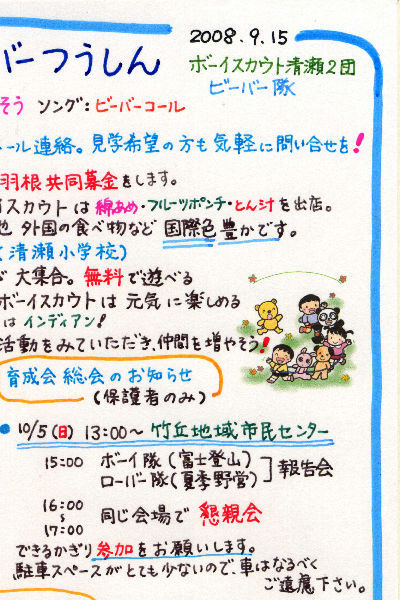 2008.9.15
バーつうしん
ボーイスカウト清瀬2団
ビーバー隊
そう ソング:ビーバーコール
ール連絡。見学希望の方も気軽に問い合せを!
羽根共同募金をします。
イスカウトは綿あめ・フルーツポンチ・とん汁を出店。
也 外国の食べ物など 国際色豊かです。
(清瀬小学校)
ど 大集合。無料で遊べる
ボーイスカウトは 元気に楽しめる
は インディアン!
活動をみていただき、仲間を増やそう!
育成会総会のお知らせ
(保護者のみ)
・10/5(日) 13:00~ 竹丘地域市民センター
15:00 ボーイ隊(富士登山)
ローバー隊(夏季野営)]報告会
16:00
~ 同じ会場で 懇親会
17:00
できるかぎり参加をお願いします。
駐車スペースがとても少ないので、車はなるべく
ご遠慮下さい。